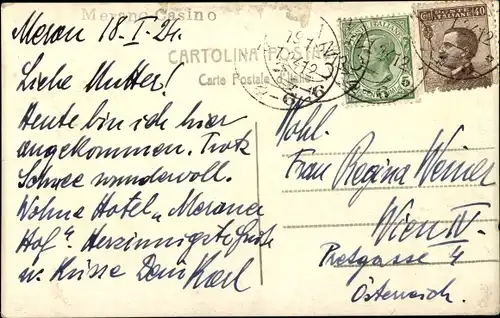 Merano Casino
Meran 18-I-24.
CARTOLINA POSTALE
Carte Postale d'Italie
Liebe Mutter!
Heute bin ich hier
angekommen. Trotz
Schnee wundervoll.
Wohne Hotel „Meraner
Hof". Herzinnigste Grüße
u. Küsse Dein Karl
POSTE ITALIANE
5
Cent 40
Wohl.
Frau Regina Weiner
Wien IV.
Pressgasse 4
Österreich.